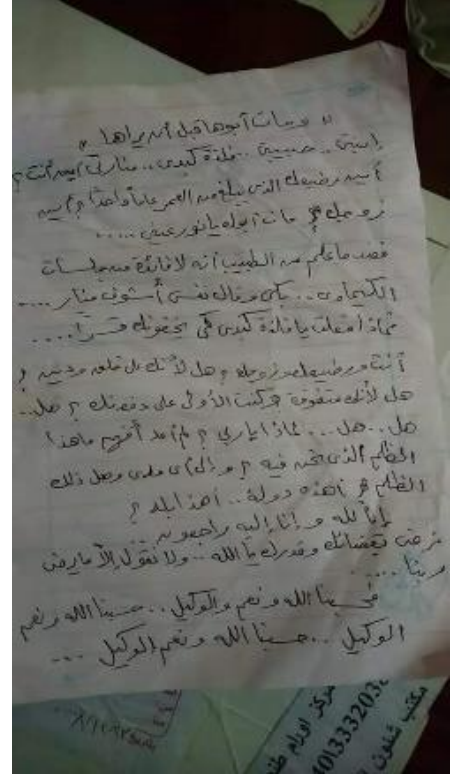 " ومات أبوها قبل أن يراها "
إبنتى .. حبيبتى .. فلذة كبدى .. منارتى أين أنت ؟
أين رضيعك الذى يبلغ من العمر عاماً واحداً ؟ أين
زوجك ؟ مات أبوك يا نور عينى .....
فعندما علم من الطبيب أنه لا فائدة من جلسات
الكيماوى .. بكى وقال نفسى أشوف منار ....
لماذا فعلت يا فلذة كبدى كى يخفوك قسراً ....
أنت ورضيعك وزوجك ؟ هل لأنك على خلق ودين ؟
هل لأنك متفوقة وكنت الأولى على دفعتك ؟ هل ..
هل .. هل ... لماذا يا ربى ؟ لم أعد أفهم ما هذا
الظلم الذى نحن فيه ؟ وإلى أى مدى وصل ذلك
الظلم ؟ أهذه دولة .. أهذا بلد ؟
إنا لله و إنا إليه راجعون ..
نرضى بقضائك وقدرك يا الله .. ولا نقول إلا ما يرضى
ربنا .....
فحسبنا الله ونعم والوكيل .. حسبنا الله ونعم
الوكيل .. حسبنا الله ونعم الوكيل ...
مركز اورام
مكتب شئون